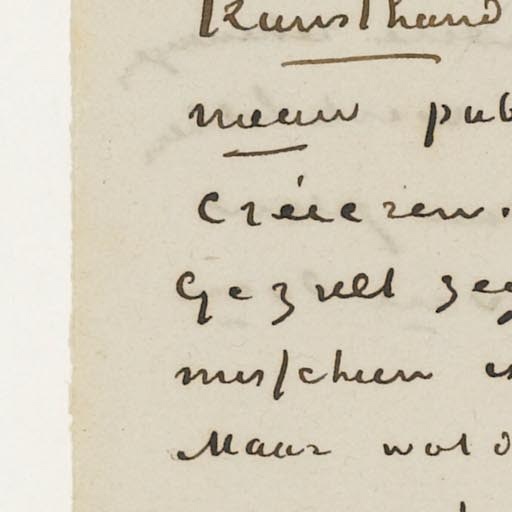 Kunsthand
nieuw pub
creëeren.
Gij zult zeg
misschien is
Maar wat d